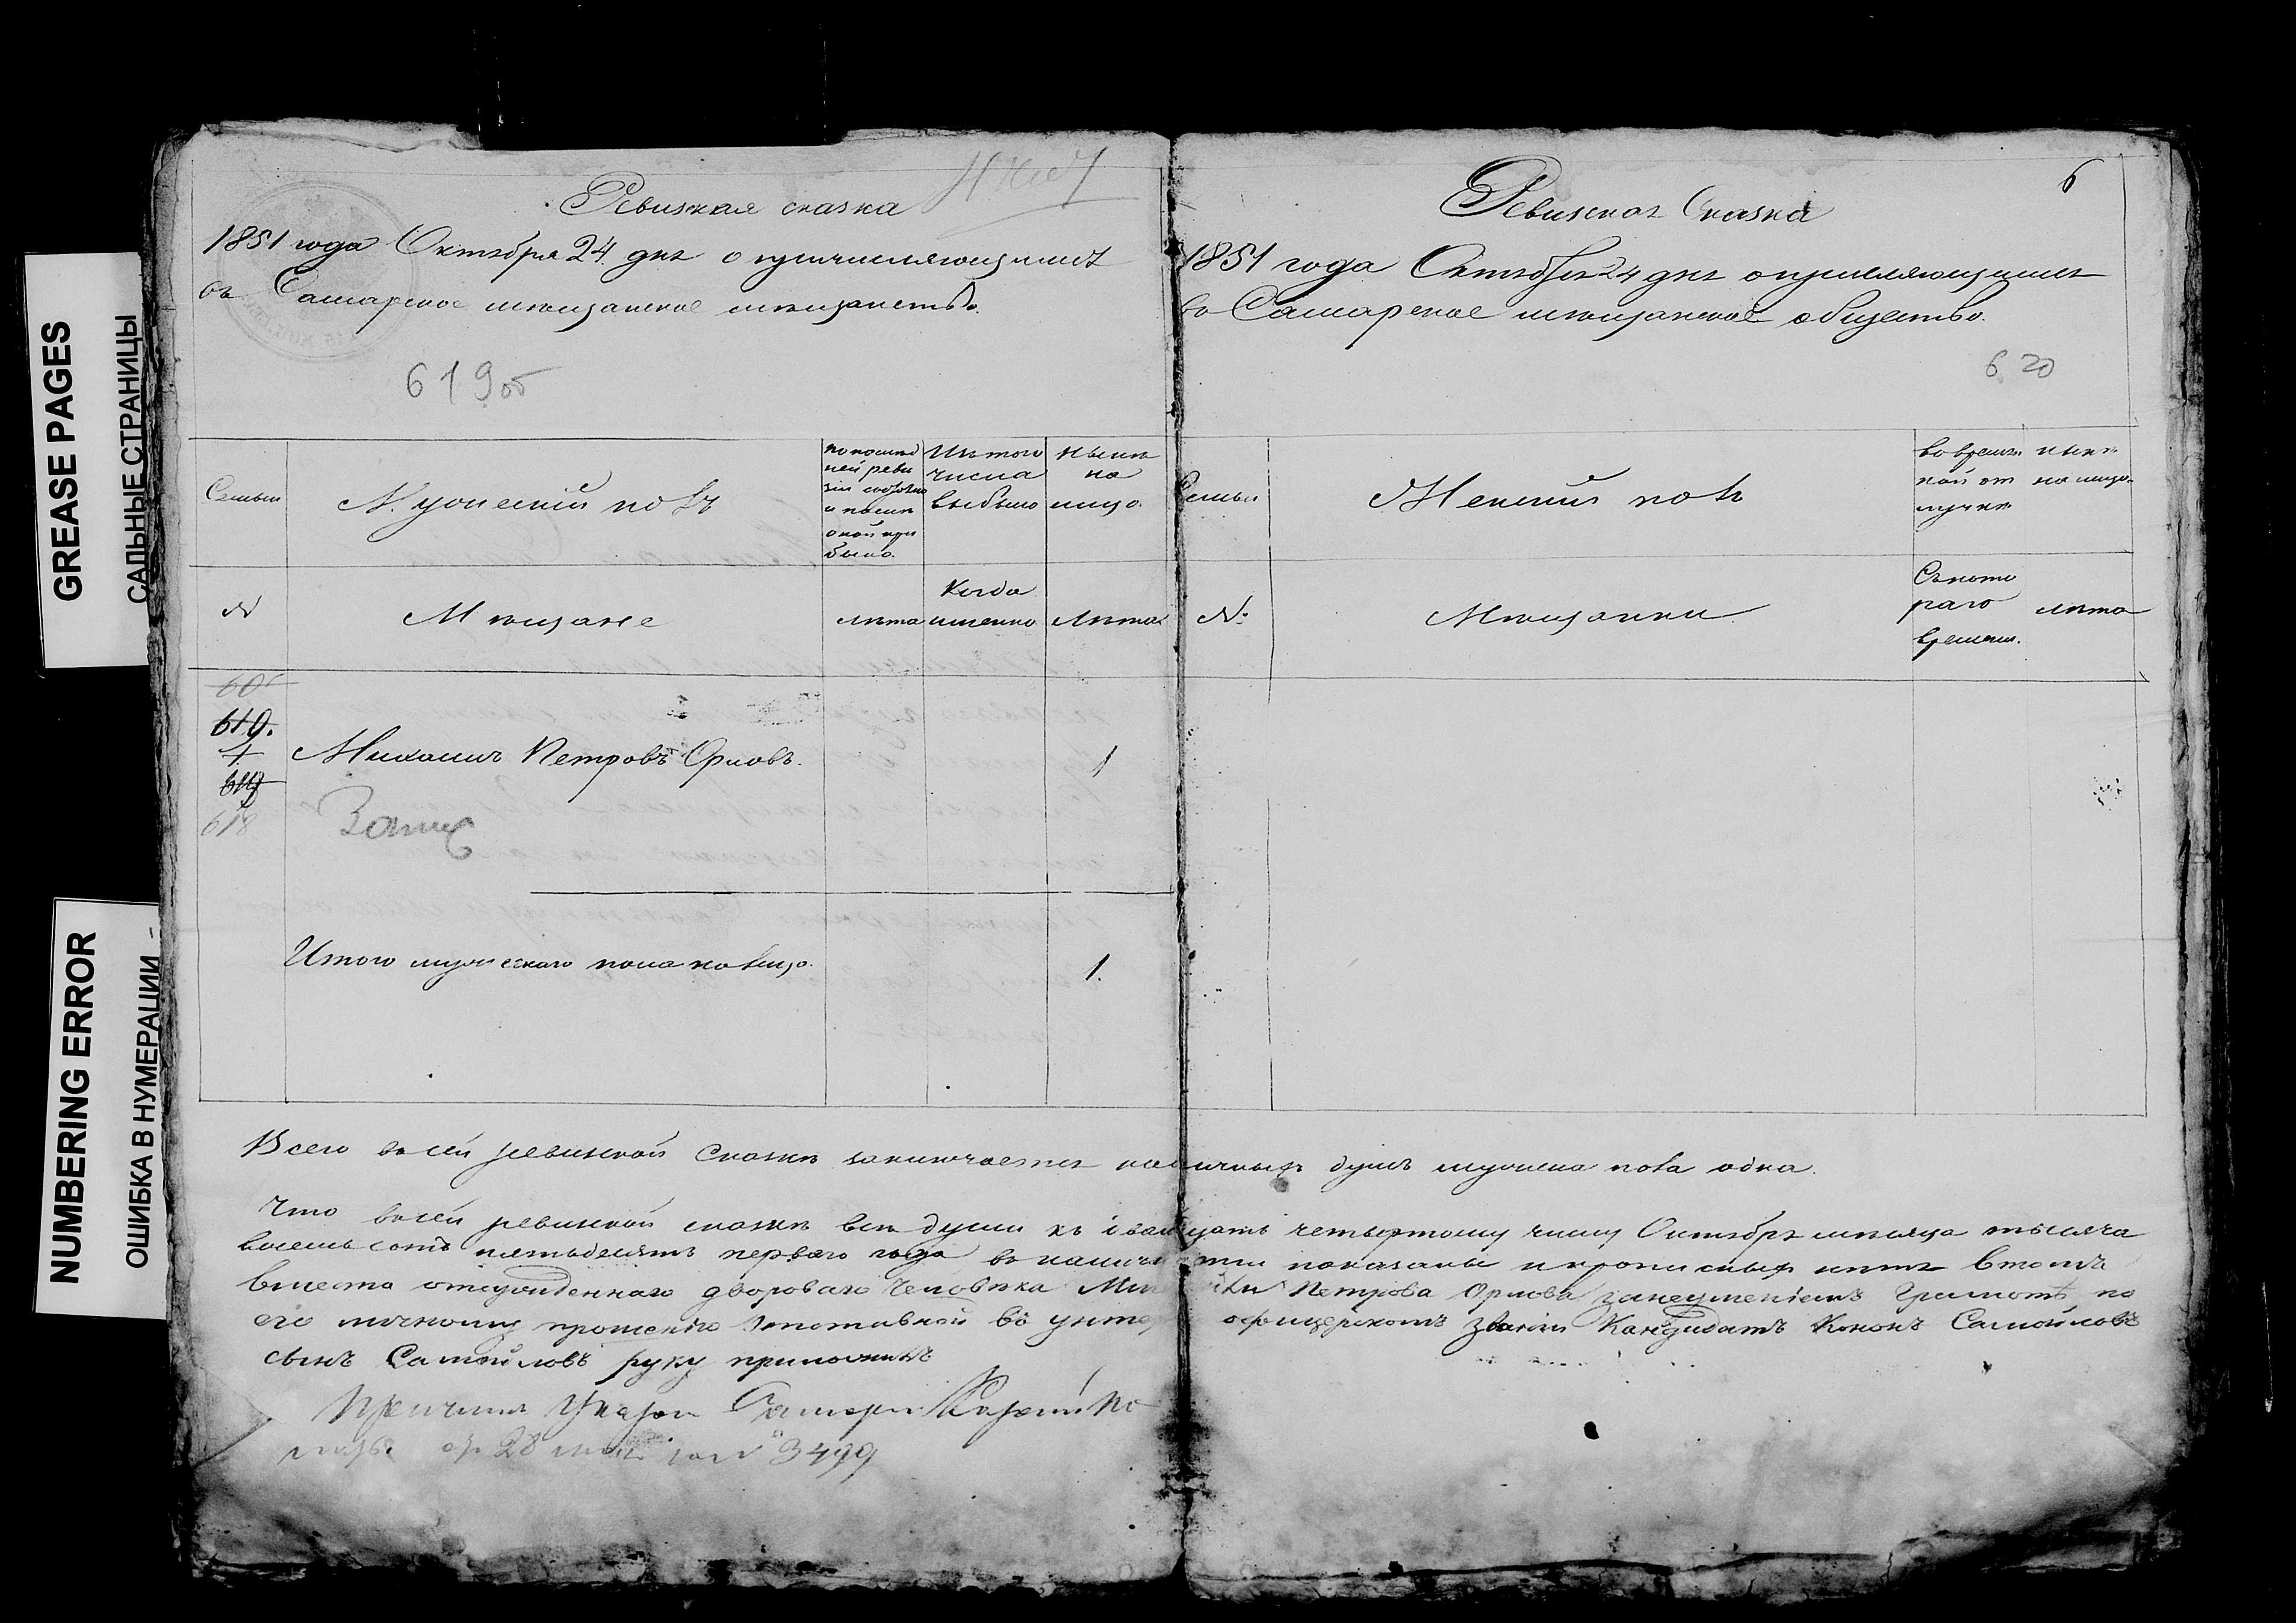 GREASE PAGES
САЛЬНЫЕ СТРАНИЦЫ
NUMBERING ERROR
ОШИБКА В НУМЕРАЦИИ
Ревизкая сказка
1851 года Октября 24 дня о причисляющимся
въ Самарское мѣщанское мѣщанство.
619 об
Семьи
Мужескій полъ
по послѣдней ревизіи состояло и послѣ оной прибыло.
Изъ того числа выбыло
Нынѣ на лицо.
№
Мѣщане
лѣта
Когда именно
Лѣта
619.
1
618
Михаилъ Петровъ Орловъ. 1
Итого мужескаго пола на лицо. 1.
6
Ревизская Сказка
1851 года Октября 24 дня о причисляющимся
въ Самарское мѣщанское общество.
620
Семьи
Женскій полъ
во временной отлучкѣ
нынѣ на лицо.
№.
Мѣщанки
Съ котораго времени.
лѣта
Всего въ сей ревизской Сказкѣ заключается наличныхъ душъ мужеска пола одна.
Что въ сей ревизской сказкѣ всѣ души къ двадцать четвертому числу Октября мѣсяца тысяча
восемьсотъ пятьдесятъ первого года въ наличности показаны и прописныхъ нѣтъ въ томъ
вместо отсужденнаго двороваго Человѣка Петрова Орлова за неумениемъ Грамотѣ по
его личному прошению въ унтеръ офицерскомъ звании Кандидатъ Кононъ Самойловъ
сынъ Самойловъ руку приложилъ
28 3499